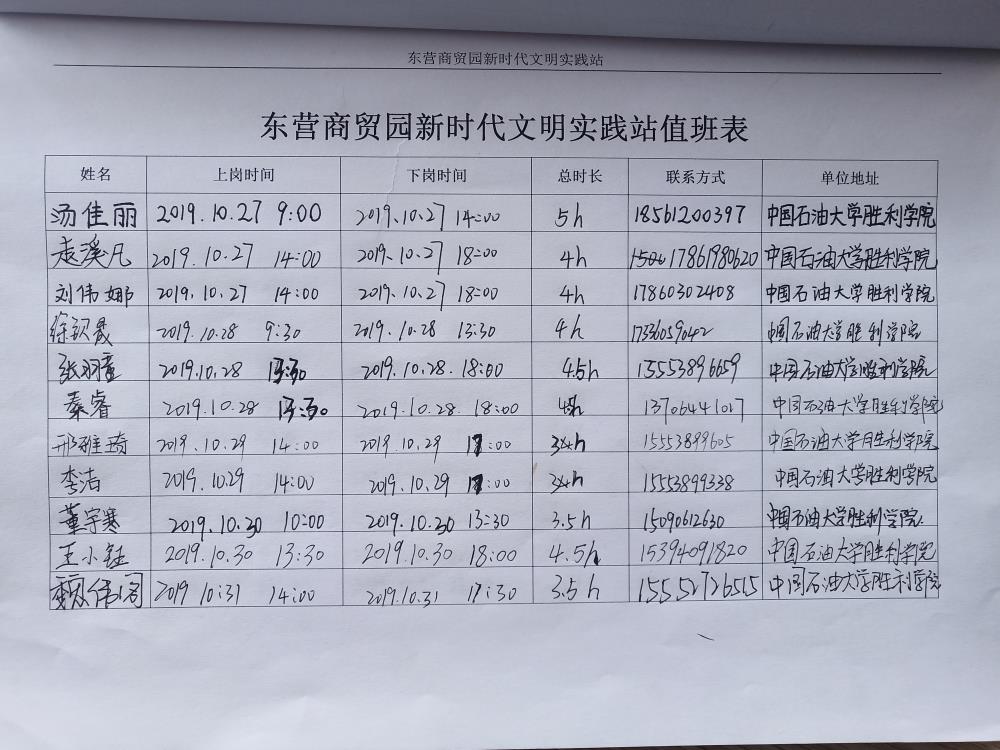 东营商贸园新时代文明实践站
东营商贸园新时代文明实践站值班表
姓名 上岗时间 下岗时间 总时长 联系方式 单位地址
汤佳丽 2019.10.27 9:00 2019.10.27 14:00 5h 18561200397 中国石油大学胜利学院
孟溪凡 2019.10.27 14:00 2019.10.27 18:00 4h 17861980620 中国石油大学胜利学院
刘伟娜 2019.10.27 14:00 2019.10.27 18:00 4h 17860302408 中国石油大学胜利学院
徐钦晟 2019.10.28 9:30 2019.10.28 13:30 4h 17336059042 中国石油大学胜利学院
张羽童 2019.10.28 13:30 2019.10.28 18:00 4.5h 15553896659 中国石油大学胜利学院
秦睿 2019.10.28 13:30 2019.10.28 18:00 13706441017 中国石油大学胜利学院
邢雅琦 2019.10.29 14:00 2019.10.29 17:00 15553899605 中国石油大学胜利学院
李洁 2019.10.29 14:00 2019.10.29 17:00 15553899338 中国石油大学胜利学院
董宇寒 2019.10.30 10:00 2019.10.30 13:30 3.5h 15090612630 中国石油大学胜利学院
王小钰 2019.10.30 13:30 2019.10.30 18:00 4.5h 15394091820 中国石油大学胜利学院
魏伟阁 2019 10:31 14:00 2019.10.31 17:30 3.5h 15552726515 中国石油大学胜利学院